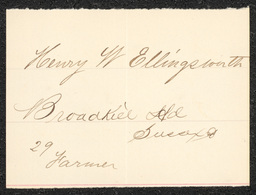 Henry W Ellingsworth
Broadkiel Hd
Sussex
29
Farmer